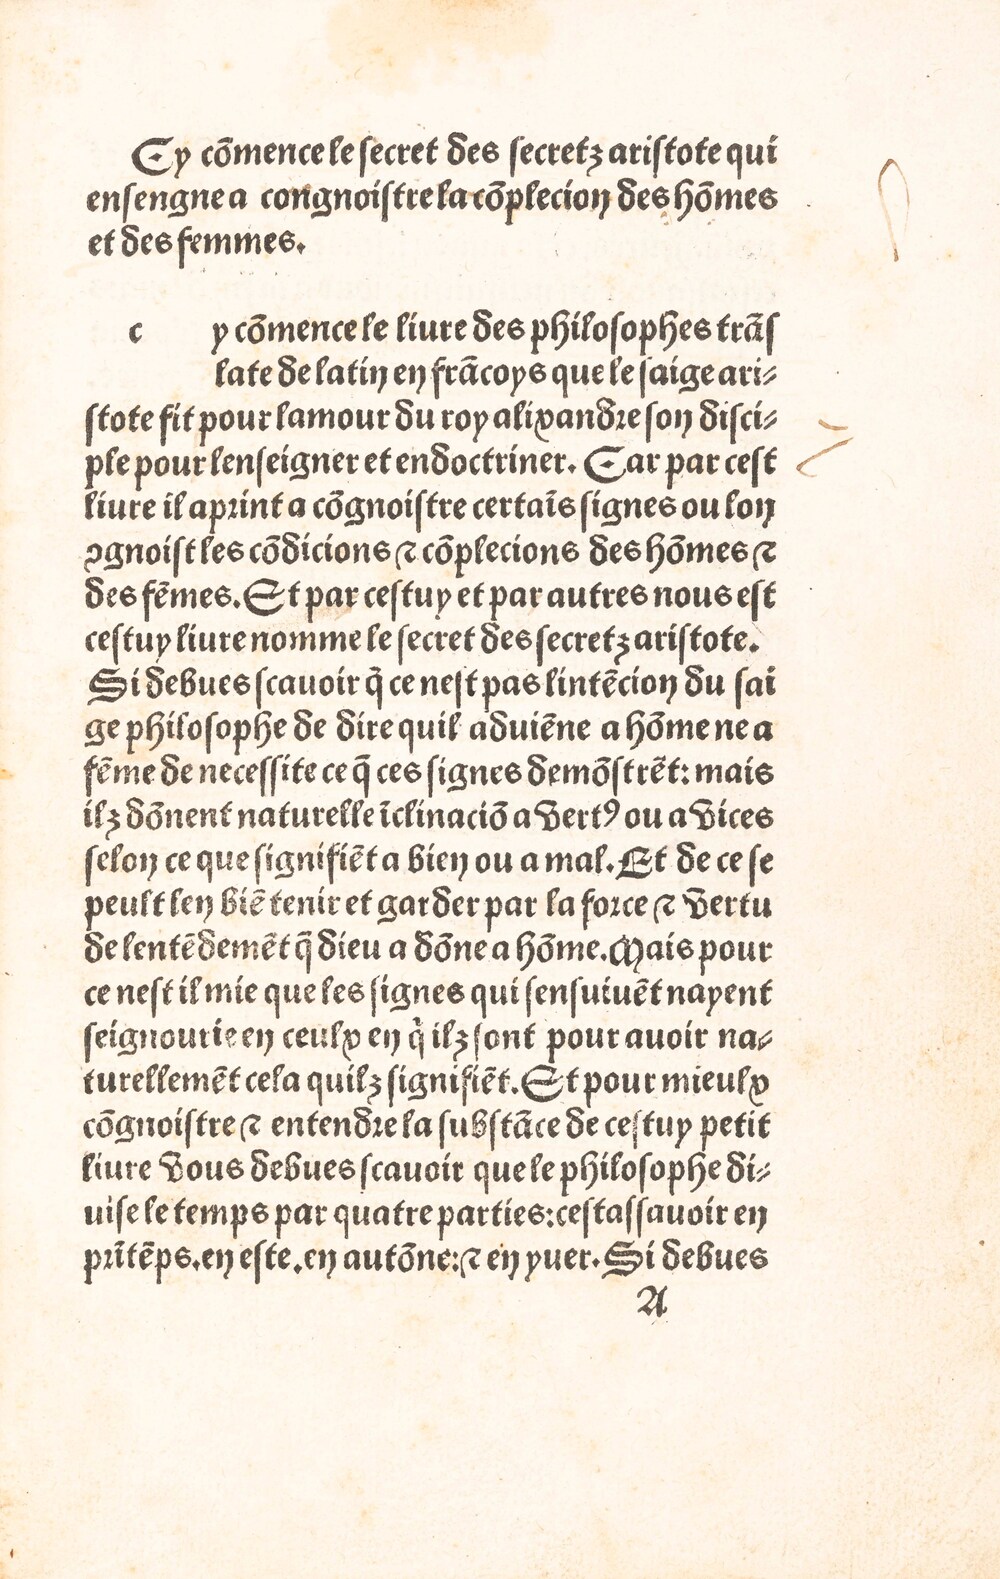 Cy cõmence le secret des secretz aristote qui
ensengne a congnoistre la cõplecion des hõmes
et des femmes.
c y cõmence le liure des philosophes trãs
late de latin en frãcoys que le saige ari⸗
stote fit pour lamour du roy alixandre son disci⸗
ple pour lenseigner et endoctriner. Car par cest
liure il aprint a cõgnoistre certaĩs signes ou lon
ꝯgnoist les cõdicions ⁊ cõplecions des hõmes ⁊
des fẽmes. Et par cestuy et par autres nous est
cestuy liure nomme le secret des secretz aristote.
Si debues scauoir q̃ ce nest pas lintẽcion du sai
ge philosophe de dire quil aduiẽne a hõme ne a
fẽme de necessite ce q̃ ces signes demõstrẽt: mais
ilz dõnent naturelle ĩclinaciõ a vertꝰ ou a vices
selon ce que signifiẽt a bien ou a mal. Et de ce se
peult len biẽ tenir et garder par la force ⁊ vertu
de lentẽdemẽt q̃ dieu a dõne a hõme. Mais pour
ce nest il mie que les signes qui sensuiuẽt nayent
seignourie en ceulx en q̃ ilz sont pour auoir na⸗
turellemẽt cela quilz signifiẽt. Et pour mieulx
cõgnoistre ⁊ entendre la substãce de cestuy petit
liure vous debues scauoir que le philosophe di⸗
uise le temps par quatre parties: cestassauoir en
prĩtẽps. en este. en autõne: ⁊ en yuer. Si debues
A